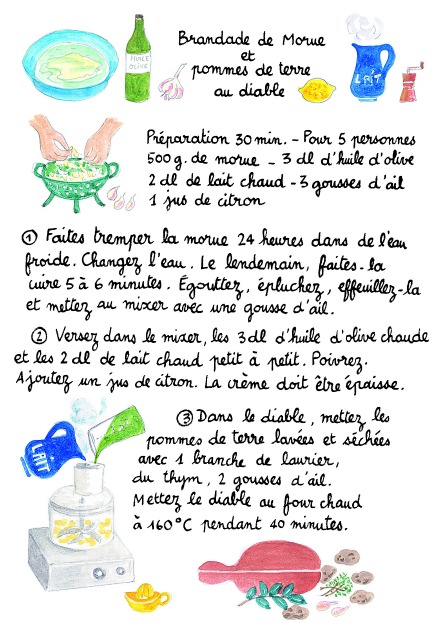 Brandade de Morue
et
pommes de terre
au diable
HUILE
OLIVE
LAIT
Préparation 30 min. - Pour 5 personnes
500 g. de morue - 3 dl d'huile d'olive
2 dl de lait chaud - 3 gousses d'ail
1 jus de citron
① Faites tremper la morue 24 heures dans de l'eau
froide. Changez l'eau. Le lendemain, faites-la
cuire 5 à 6 minutes. Égouttez, épluchez, effeuillez-la
et mettez au mixer avec une gousse d'ail.
② Versez dans le mixer, les 3 dl d'huile d'olive chaude
et les 2 dl de lait chaud petit à petit. Poivrez.
Ajoutez un jus de citron. La crème doit être épaisse.
LAIT
③ Dans le diable, mettez les
pommes de terre lavées et séchées
avec 1 branche de laurier,
du thym, 2 gousses d'ail.
Mettez le diable au four chaud
à 160°C pendant 40 minutes.